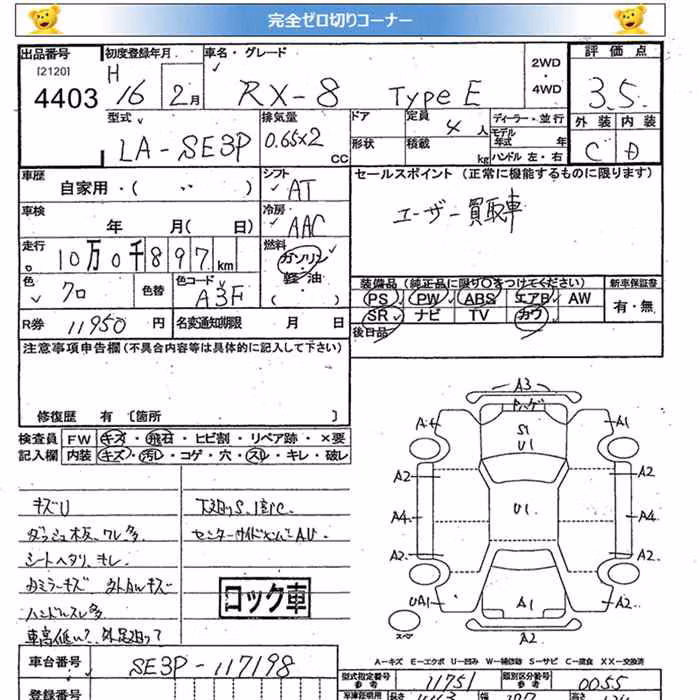 完全ゼロ切りコーナー
出品番号 初度登録年月 車名・グレード 2WD・4WD 評価点
[2120] H
4403 16 2月 RX-8 Type E 3.5
型式 排気量 ドア 定員 4人 ディーラー・並行 外装 内装
LA-SE3P 0.65×2 CC 形状 積載 kg モデル年式 年 ハンドル 左・右 C D
車歴 シフト セールスポイント (正常に機能するものに限ります)
自家用・( ) AT
車検 年 月( 日) 冷房 AAC ユーザー買取車
走行 10万0千897km 燃料 ガソリン 軽・油 ( )
装備品 (純正品に限り○をつけてください) 新車保証書
色 クロ 色替 色コード A3F PS PW ABS エアB AW 有・無
SR ナビ TV カワ
R券 11950円 名変通知期限 月 日 後日品
注意事項申告欄(不具合内容等は具体的に記入して下さい)
修復歴 有 〔箇所 〕
検査員 FW キズ・飛石・ヒビ割・リペア跡・×要
記入欄 内装 キズ・汚レ・コゲ・穴・スレ・キレ・破レ
キズU
ダッシュ板、ワレ多
シートヘタリ、キレ
ハンドルスレ多
A3
A1
S1
U1
A2 A2
A4 U1 A4
A2 A2
UA1 A1 A2
A2
スペア
ロック車
A-キズ E-エクボ U-凹み W-補修跡 S-サビ C-腐食 XX-交換済
車台番号 SE3P-117198
型式指定番号 参考 11751 類別区分番号 参考 0055
登録番号